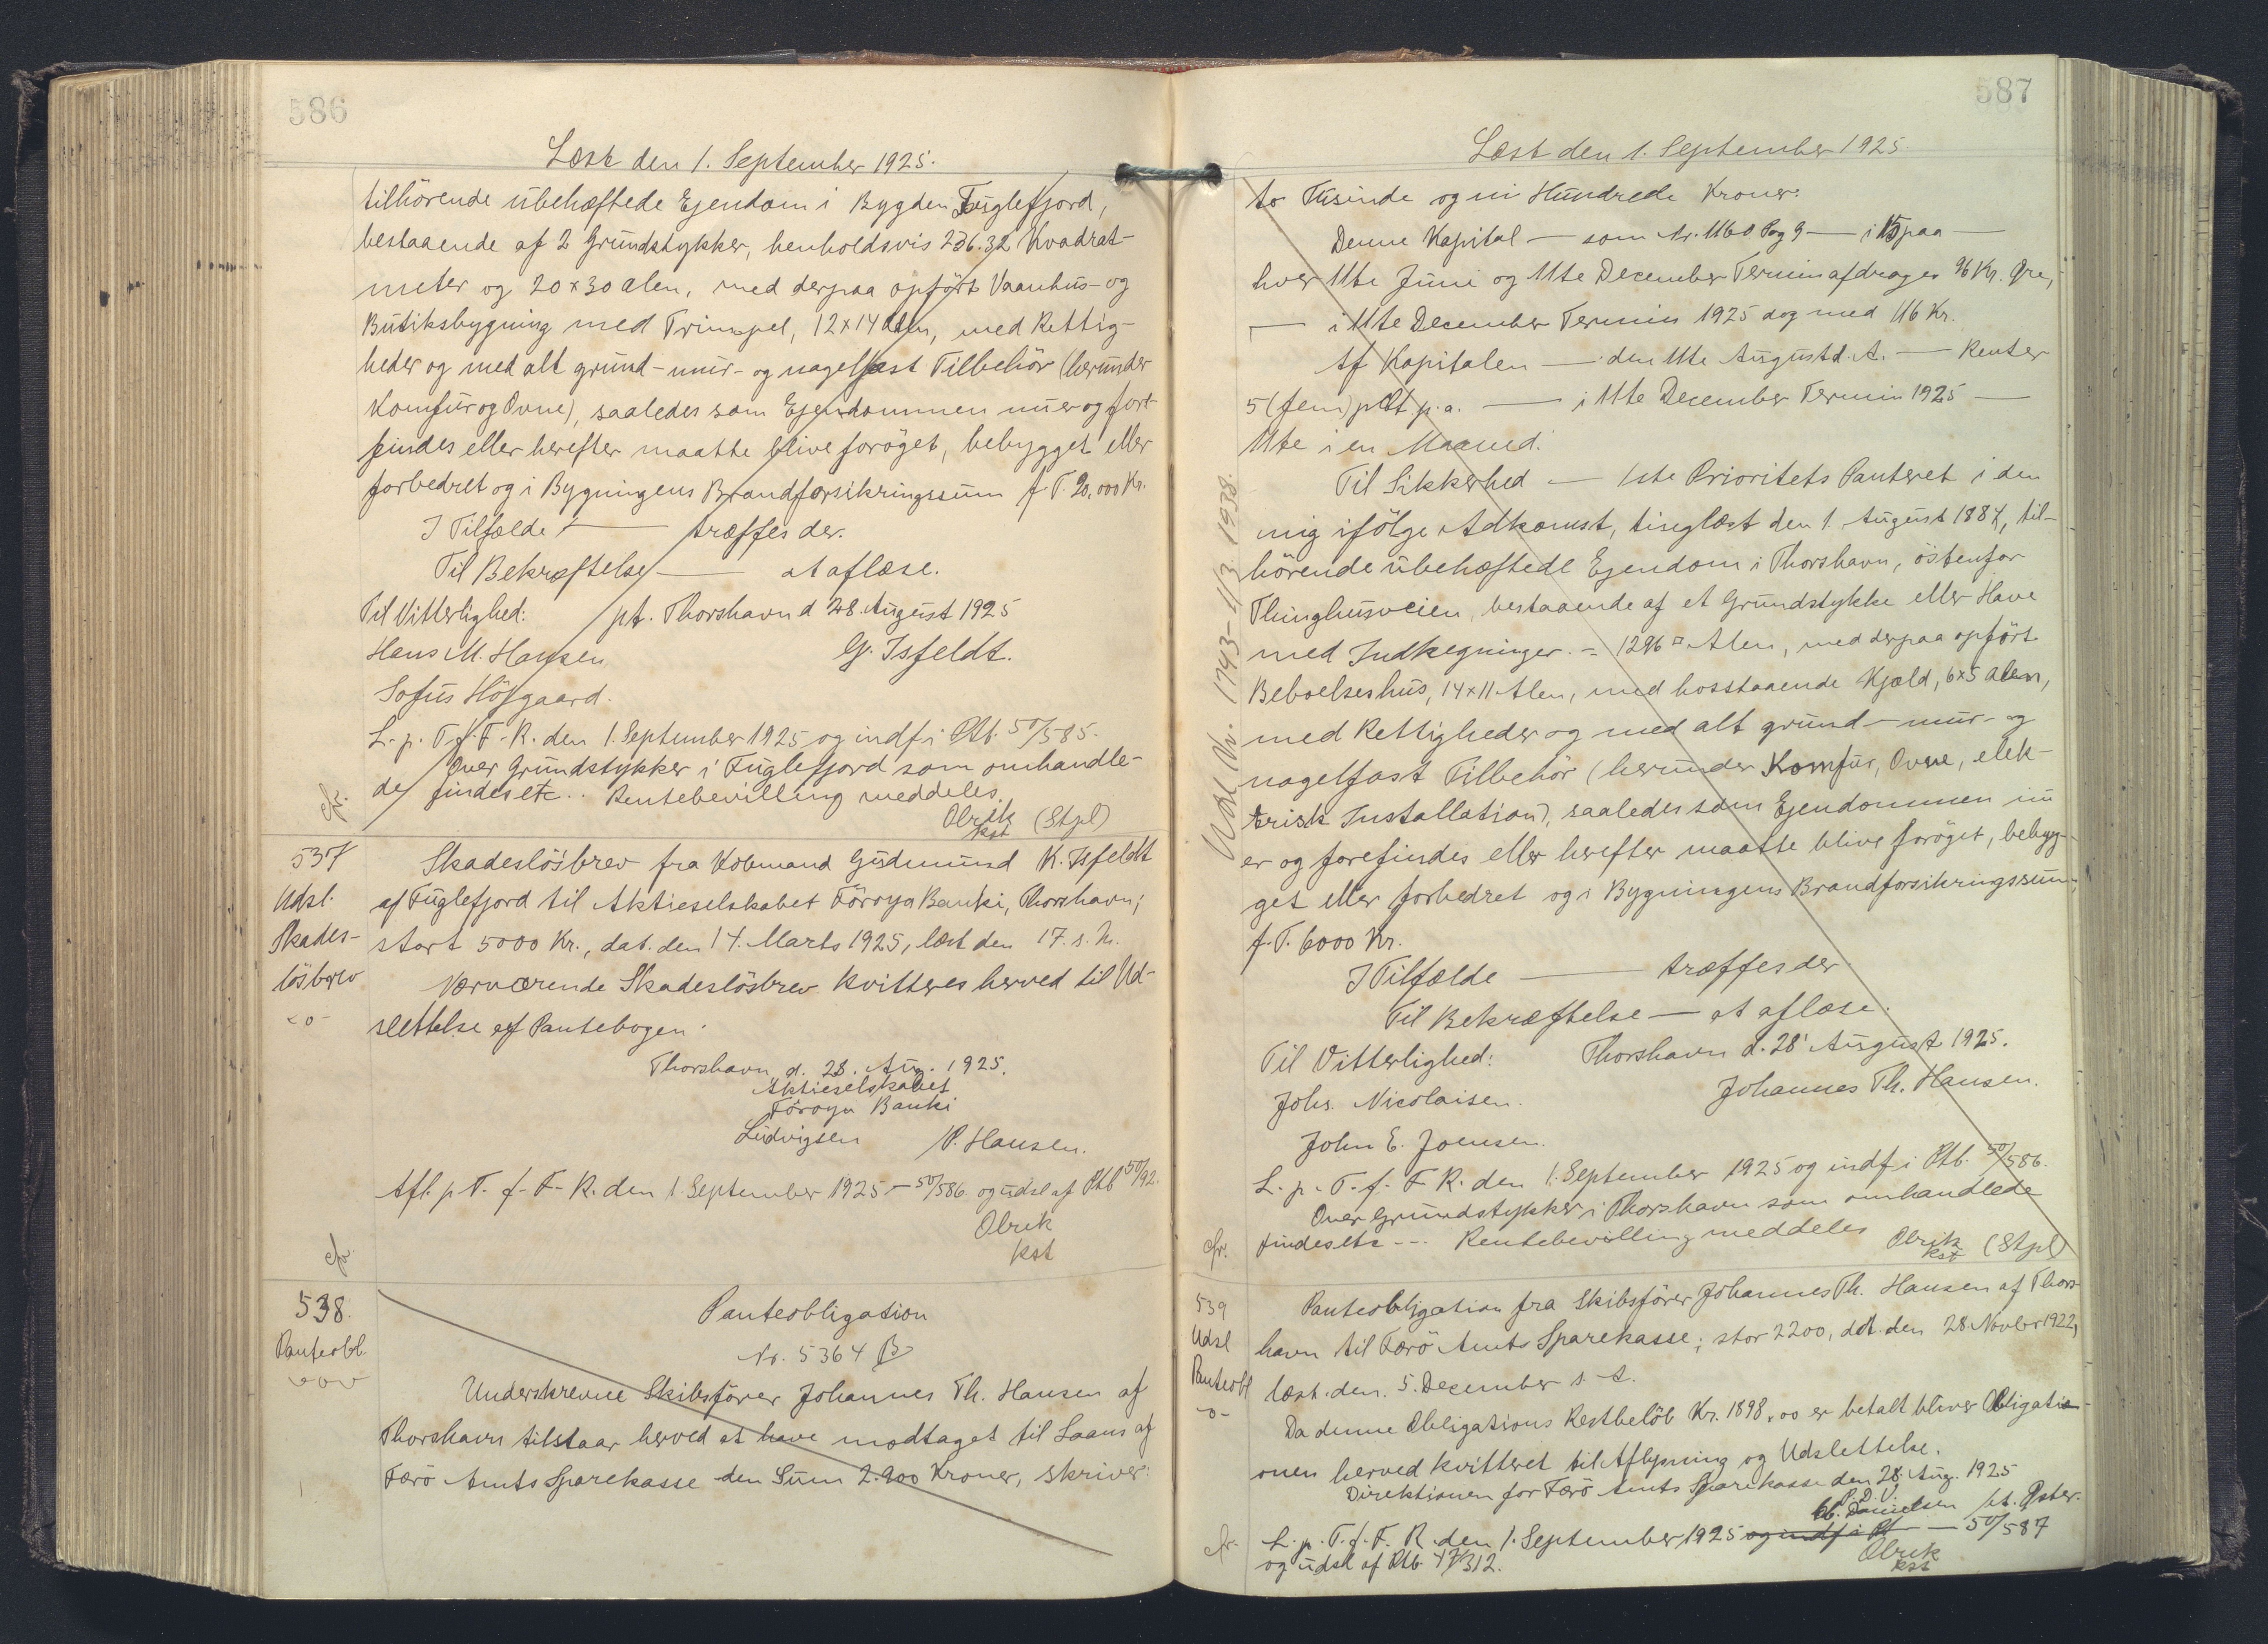 586
Læst den 1. September 1925.
tilhörende ubehæftede Ejendom i Bygden Fuglefjord,
bestaaende af 2 Grundstykker, henholdsvis 236.32 Kvadrat-
meter og 20 x 30 Alen, med derpaa opfört Vaanhus- og
Butiksbygning med Trimpel, 12 x 14 Alen, med Rettig-
heder og med alt grund- mur- og nagelfast Tilbehör (herunder
Komfur og Ovne), saaledes som Ejendommen nu er og fore-
findes eller herefter maatte blive foröget, bebygget eller
forbedret og i Bygningens Brandforsikringssum f. T. 20.000 Kr.
I Tilfælde — træffes der.
Til Bekræftelse — at aflæse.
Til Vitterlighed: pt. Thorshavn d 28. August 1925
Hans M. Hansen G. Isfeldt.
Sofus Höjgaard.
L. p. T. f. F. R. den 1. September 1925 og indf i Ptb. 50/585.
Over Grundstykker i Fuglefjord som omhandle-
de findes etc.. Rentebevilling meddeles.
cfr.
Olrik (Stpl)
kst
537
Udsl.
Skades-
lösbrev
-o-
Skadeslösbrev fra Købmand Gudmund K. Isfeldt
af Fuglefjord til Aktieselskabet Föroya Banki, Thorshavn;
stort 5000 Kr., dat. den 14. Marts 1925, læst den 17. s. M.
Nærværende Skadeslösbrev kvitteres herved til Ud-
slettelse af Pantebogen.
Thorshavn, d. 28. Aug. 1925.
Aktieselskabet
Föroya Banki
Ludvigsen P. Hansen.
Afl. p T. f. F. R. den 1. September 1925 — 50/586 og udsl af Ptb 50/92.
Olrik
kst
cfr.
538.
Panteobl.
Panteobligation
Nr. 5364 B
Underskrevne Skibsförer Johannes Th. Hansen af
Thorshavn tilstaar herved at have modtaget til Laans af
Færö Amts Sparekasse den Sum 2.900 Kroner, skriver:
587
Læst den 1. September 1925.
to Tusinde og ni Hundrede Kroner.
Denne Kapital — som Nr. 1160 Pag 9 — i 15 paa —
hver 11te Juni og 11te December Termin afdrages 96 Kr. Øre,
— i 11te December Termin 1925 dog med 116 Kr.
Af Kapitalen — den 11te August d. A. — Renter
5 (fem) pCt. p. a. — i 11te December Termin 1925 —
11te i en Maaned.
Til Sikkerhed — 1ste Prioritets Panteret i den
mig ifölge Adkomst, tinglæst den 1. August 1887, til-
hörende ubehæftede Ejendom i Thorshavn, östenfor
Thinghusveien, bestaaende af et Grundstykke eller Have
med Indhegninger. = 1296 □ Alen, med derpaa opfört
Beboelseshus, 14 x 11 Alen, med hosstaaende Kjæld, 6 x 5 Alen,
med Rettigheder og med alt grund- mur- og
nagelfast Tilbehör (herunder Komfur, Ovne, elek-
trisk Installation), saaledes som Ejendommen nu
er og forefindes eller herefter maatte blive foröget, bebyg-
get eller forbedret og i Bygningens Brandforsikringssum,
f. T. 6000 Kr.
I Tilfælde — træffes der.
Til Bekræftelse — at aflæse.
Til Vitterlighed: Thorshavn d. 28' August 1925.
Johs. Nicolaisen. Johannes Th. Hansen.
John E. Joensen.
L. p. T. f. F. R. den 1. September 1925 og indf i Ptb. 50/586.
Over Grundstykker i Thorshavn som omhandlede
findes etc --- Rentebevilling meddeles
cfr.
Olrik (Stpl)
kst
Udsl Nr. 1743 - 1/3 1938.
539
Udsl
Panteobl
-o-
Panteobligation fra Skibsförer Johannes Th. Hansen af Thors-
havn til Færö Amts Sparekasse; stor 2200, dat. den 28. Novbr 1922,
læst den 5. December s. A.
Da denne Obligations Restbelöb Kr. 1898,00 er betalt bliver Obligatio-
onen herved kvitteret til Aflysning og Udslettelse.
Direktionen for Færö Amts Sparekasse den 28. Aug. 1925
P. D. V.
Danielsen
L. p. T. f. F. R. den 1. September 1925 og indf i Pt — 50/587
og udsl af Ptb. 47/312.
Olrik
kst
cfr.